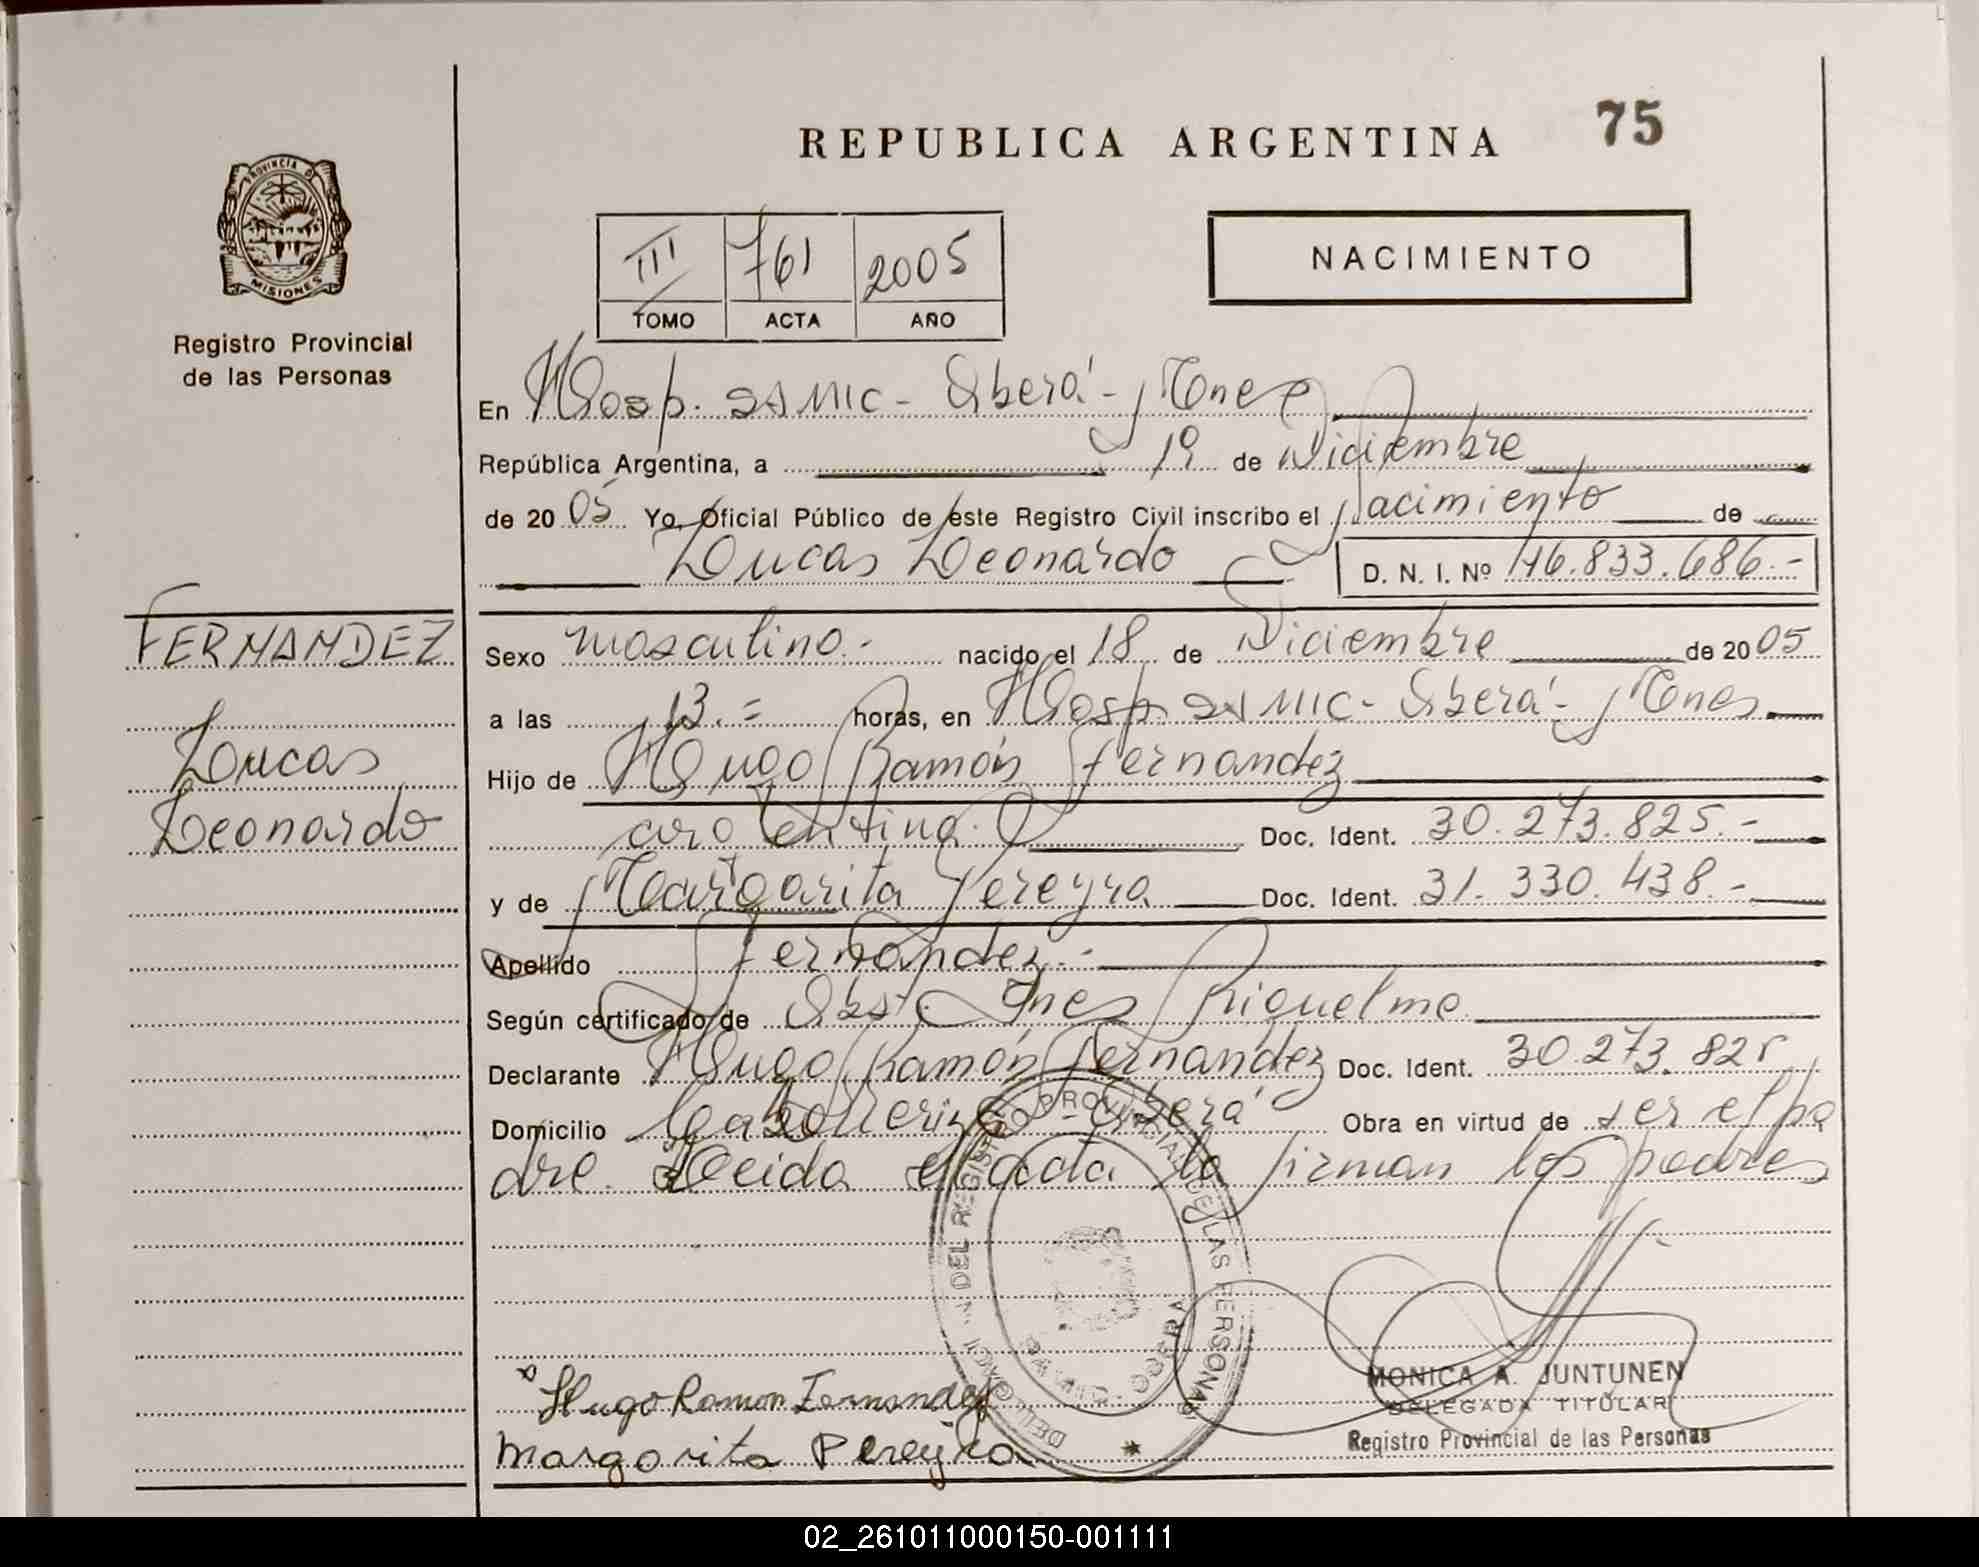 REPUBLICA ARGENTINA 75
PROVINCIA DE
MISIONES
Registro Provincial
de las Personas
III 761 2005
TOMO ACTA AÑO
NACIMIENTO
En Hosp. SAMIC - Oberá - Mnes
República Argentina, a 19 de Diciembre
de 2005 Yo, Oficial Público de este Registro Civil inscribo el Nacimiento de
Lucas Leonardo D. N. I. Nº 46.833.686.-
FERNANDEZ
Lucas
Leonardo
Sexo masculino.- nacido el 18 de Diciembre de 2005
a las 13.= horas, en Hosp. SAMIC - Oberá - Mnes
Hijo de Hugo Ramón Fernandez
argentina. Doc. Ident. 30.273.825.-
y de Margarita Pereyra Doc. Ident. 31.330.438.-
Apellido Fernandez.-
Según certificado de Obst. Ines Riquelme
Declarante Hugo Ramón Fernandez Doc. Ident. 30.273.825
Domicilio Oberá Obra en virtud de ser el pa
dre. Leida el acta la firman los padres
Hugo Ramon Fernandez
Margarita Pereyra
DEL REGISTRO PROVINCIAL DE LAS PERSONAS
MONICA A. JUNTUNEN
DELEGADA TITULAR
Registro Provincial de las Personas
02_261011000150-001111